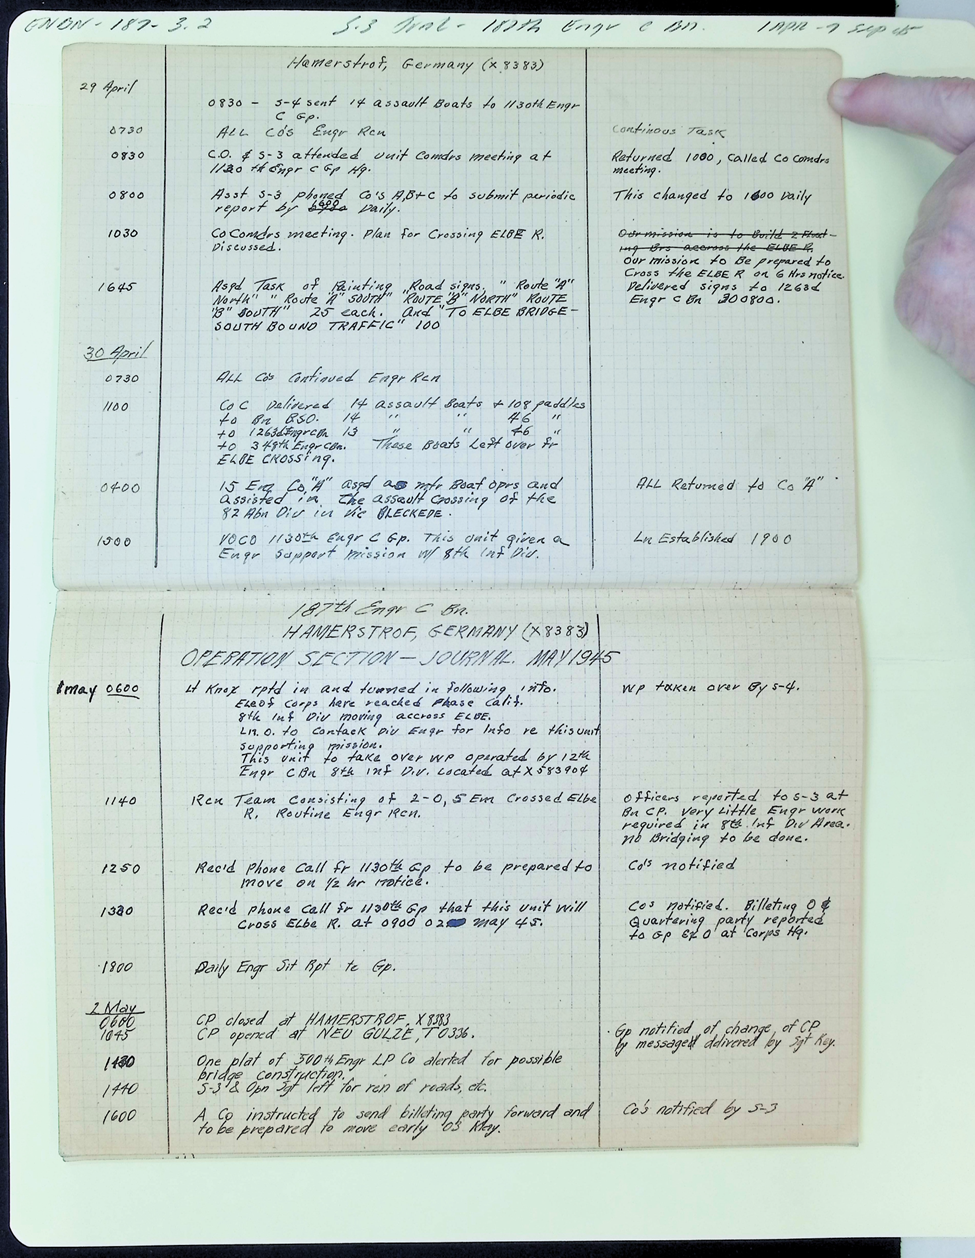 ENBN - 187 - 3.2 S-3 Jnl - 187th Engr C Bn. 1 APR - 7 Sep 45
Hamerstrof, Germany (X8383)
29 April
0830 - S-4 sent 14 assault Boats to 1130th Engr
C Gp.
0730 ALL Co's Engr Rcn Continous Task
0830 C.O. & S-3 attended unit Comdrs meeting at Returned 1000, Called Co Comdrs
1130th Engr C Gp Hq. meeting.
0800 Asst S-3 phoned Co's A, B + C to submit periodic This changed to 1600 Daily
report by Daily.
1030 Co Comdrs meeting. Plan for Crossing ELBE R. Our mission is to Build 2 Float-
Discussed. ing Brs accross the ELBE R.
Our mission to Be prepared to
Cross the ELBE R on 6 Hrs notice.
1645 Asgd Task of Painting "Road signs. " Route "A" Delivered signs to 1263d
North" " Route "A" SOUTH" ROUTE "B" NORTH" ROUTE Engr C Bn 300800.
"B" SOUTH" 25 each. And "TO ELBE BRIDGE -
SOUTH BOUND TRAFFIC" 100
30 April
0730 ALL Co's Continued Engr Rcn
1100 Co C Delivered 14 assault Boats + 108 paddles
to Bn BSO. 14 " " 46 "
to 1263d Engr C Bn 13 " " 46 "
to 348th Engr C Bn. These Boats Left over fr
ELBE CROSSING.
0400 15 Em Co. "A" asgd as mtr Boat oprs and ALL Returned to Co "A"
assisted in The assault Crossing of the
82 Abn Div in Vic BLECKEDE.
1500 VOCO 1130th Engr C Gp. This unit given a Ln Established 1900
Engr Support mission w/ 8th Inf Div.
187th Engr C Bn.
HAMERSTROF, GERMANY (X8383)
OPERATION SECTION - JOURNAL. MAY 1945
1 may 0600 Lt Knox rptd in and turned in following info. WP taken over By S-4.
Ele of Corps have reached Phase Calif.
8th Inf Div moving accross ELBE.
Ln. O. to Contack Div Engr for Info re this unit
supporting mission.
This unit to take over WP operated by 12th
Engr C Bn 8th Inf Div. Located at X583904
1140 Rcn Team Consisting of 2-O, 5 Em Crossed Elbe Officers reported to S-3 at
R. Routine Engr Rcn. Bn CP. Very Little Engr work
required in 8th Inf Div Area.
no Bridging to be done.
1250 Rec'd Phone Call fr 1130th Gp to be prepared to Co's notified
move on 1/2 hr notice.
1320 Rec'd phone Call fr 1130th Gp that this unit will Cos notified. Billeting O &
Cross Elbe R. at 0900 02 may 45. Quartering party reported
to Gp Ex O at Corps Hq.
1800 Daily Engr Sit Rpt to Gp.
2 May
0600 CP closed at HAMERSTROF, X8383
1045 CP opened at NEU GULZE, T0336. Gp notified of change of CP
by message delivered by Sgt Key.
1430 One plat of 500th Engr LP Co alerted for possible
bridge construction.
1440 S-3 & Opn Sgt left for rcn of roads, etc.
1600 A Co instructed to send billeting party forward and Co's notified by S-3
to be prepared to move early 03 May.